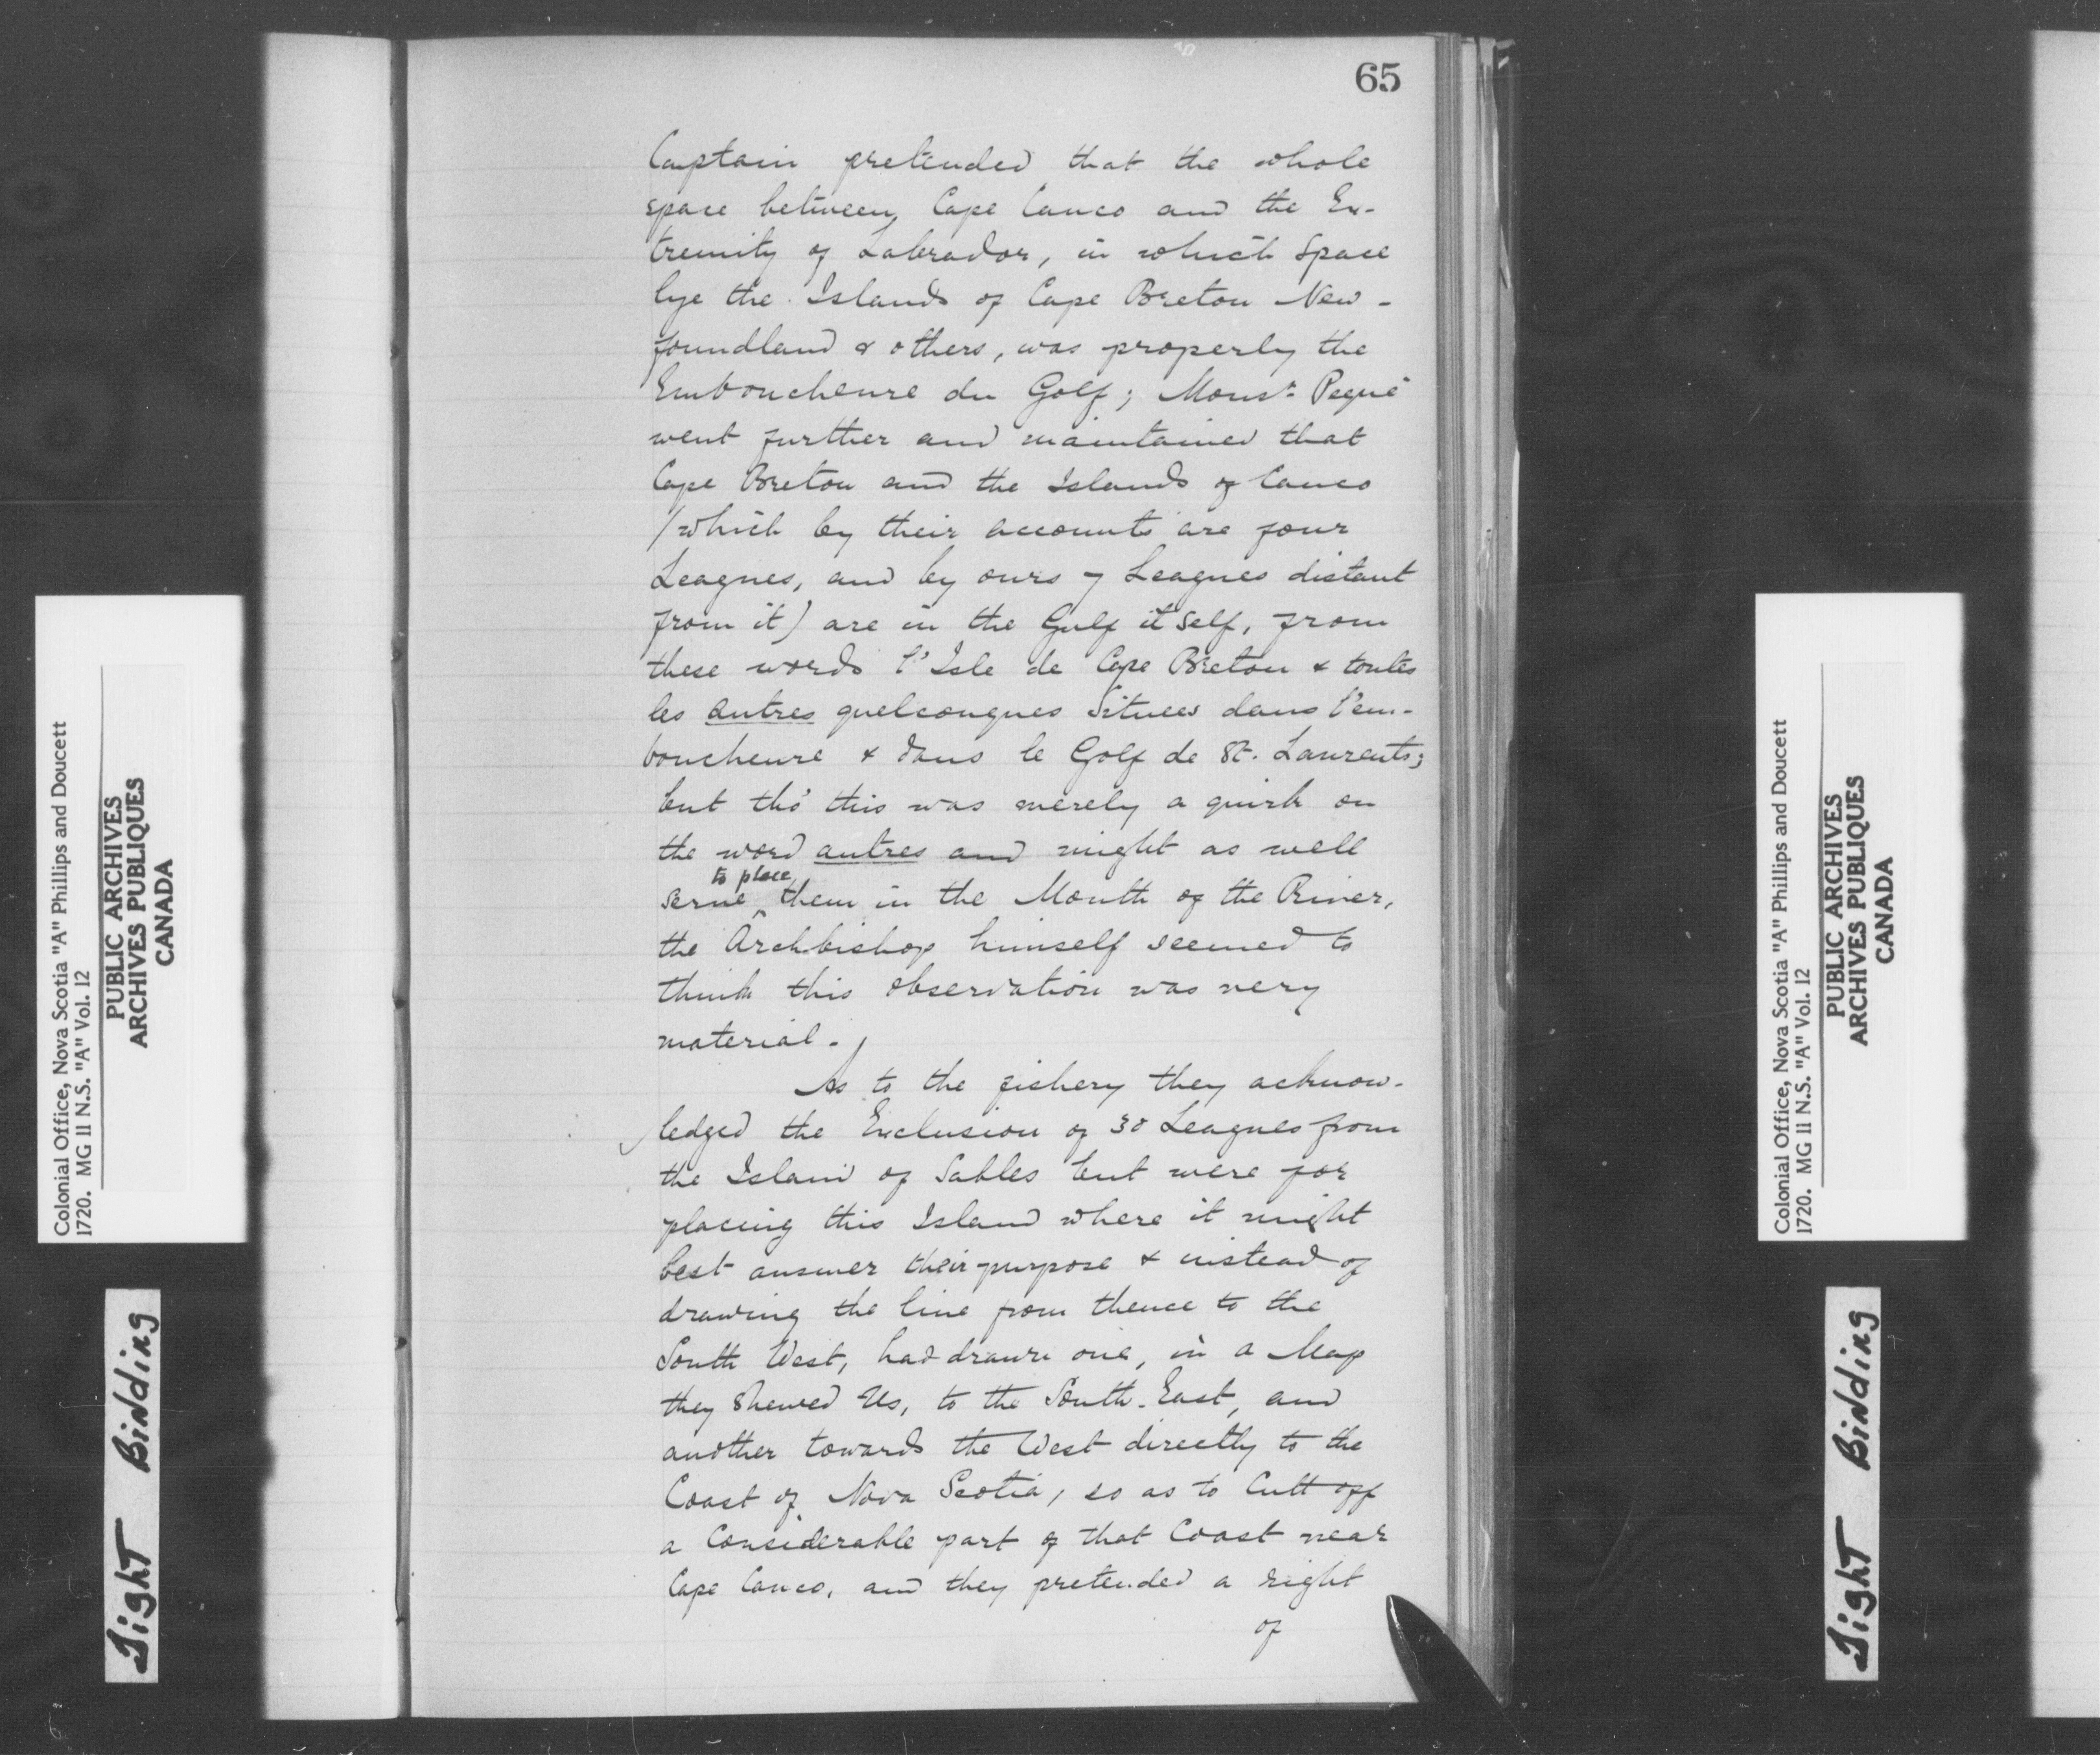 65
Captain pretended that the whole
space between Cape Canco and the Ex-
tremity of Labrador, in which space
lye the Islands of Cape Breton New-
foundland & others, was properly the
Emboucheure du Golf; Monsr. Pequé
went further and maintained that
Cape Breton and the Islands of Canco
(which by their accounts are four
Leagues, and by ours 7 Leagues distant
from it) are in the Gulf it self, from
these words l'Isle de Cape Breton & toutes
les autres quelconques situees dans l'em-
boucheure & dans le Golf de St. Laurents;
but tho' this was merely a quirk on
the word autres and might as well
to place
serve ^ them in the Mouth of the River,
the Archbishop himself seemed to
think this observation was very
material.
As to the fishery they acknow-
ledged the Exclusion of 30 Leagues from
the Island of Sables but were for
placing this Island where it might
best answer their purpose & instead of
drawing the line from thence to the
South West, had drawn one, in a Map
they shewed Us, to the South-East, and
another towards the West directly to the
Coast of Nova Scotia, so as to Cutt off
a Considerable part of that Coast near
Cape Canco, and they pretended a right
of
Colonial Office, Nova Scotia "A" Phillips and Doucett
1720. MG 11 N.S. "A" Vol. 12
PUBLIC ARCHIVES
ARCHIVES PUBLIQUES
CANADA
Tight Bidding
Colonial Office, Nova Scotia "A" Phillips and Doucett
1720. MG 11 N.S. "A" Vol. 12
PUBLIC ARCHIVES
ARCHIVES PUBLIQUES
CANADA
Tight Bidding